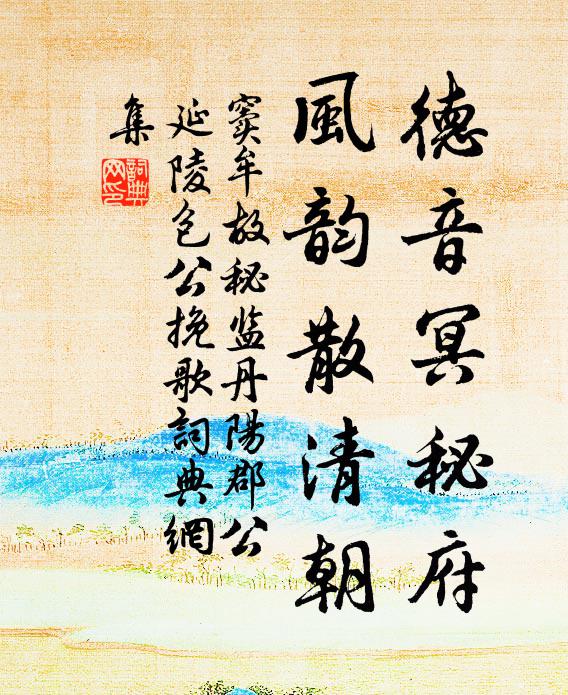 德音冥秘府
風韵散清朝
窦牟故秘监丹陽郡公
延陵包公挽歌詞典網
集
詞典
网印